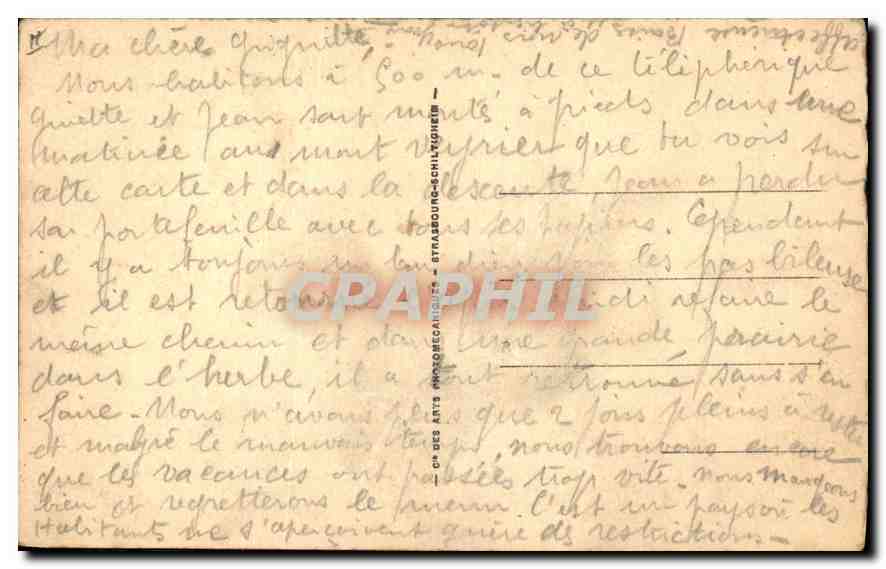 Ma chère Guiguitte,
Nous habitons à 500 m. de ce téléphérique
ginette et Jean sont montés à pieds dans une
matinée au mont veyrier que tu vois sur
cette carte et dans la descente, Jean a perdu
son portefeuille avec tous ses papiers. Cependant
il y a toujours un bon dieu pour les pas bileuse
et il est retourné midi refaire le
même chemin et dans une grande prairie
dans l'herbe, il a tout retrouvé sans s'en
faire - Nous n'avons plus que 2 jours pleins à rester
et malgré le mauvais temps, nous trouvons encore
que les vacances ont passées trop vite - nous mangeons
bien et regretterons le menu. C'est un pays où les
Habitants ne s'aperçoivent guère des restrictions -
affectueux Baisers de nous trois
— Cie DES ARTS PHOTOMECANIQUES — STRASBOURG-SCHILTIGHEIM —
CPARPHIL